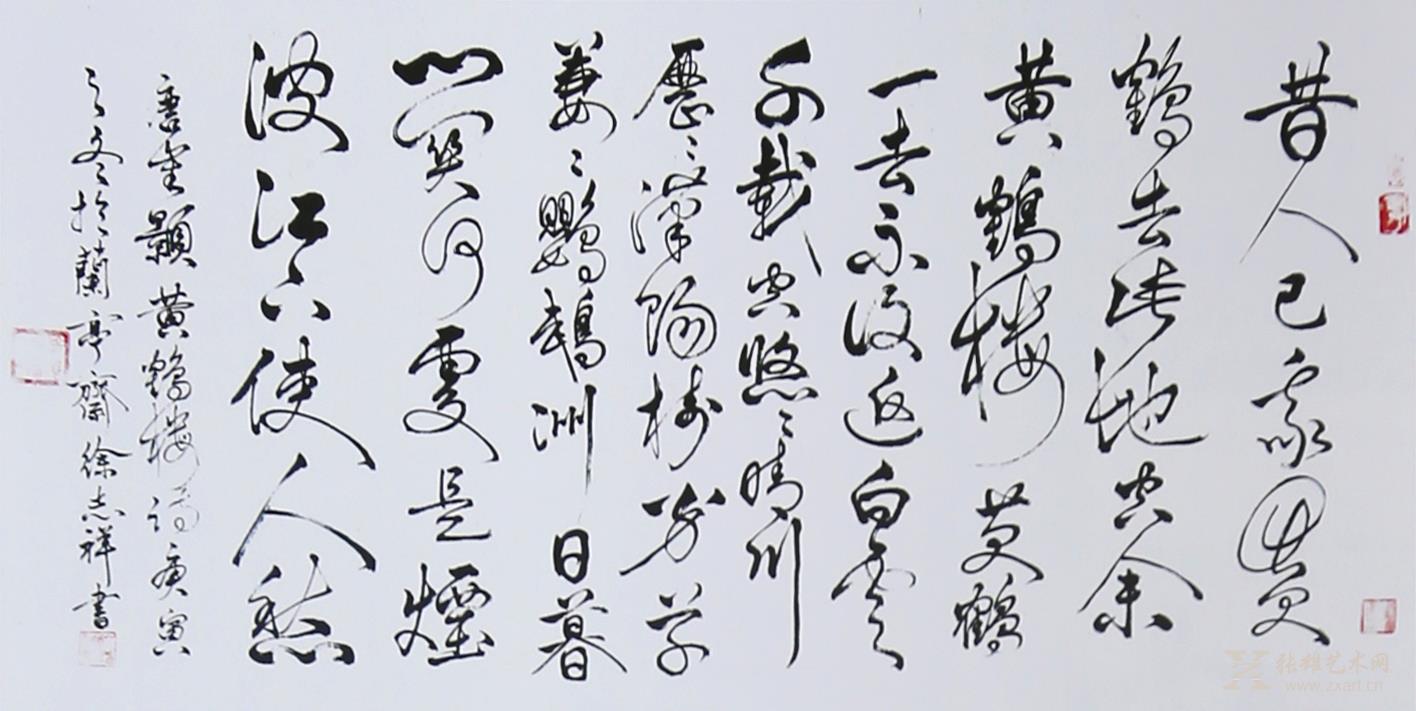 昔人已乘黄
鶴去此地空余
黄鶴樓黄鶴
一去不復返白雲
千載空悠〻晴川
歷〻漢陽樹芳草
萋〻鸚鵡洲日暮
鄉關何處是煙
波江上使人愁
唐崔顥黄鶴樓詩庚寅
之冬於蘭亭齋徐志祥書
张雄艺术网
www.zxart.cn